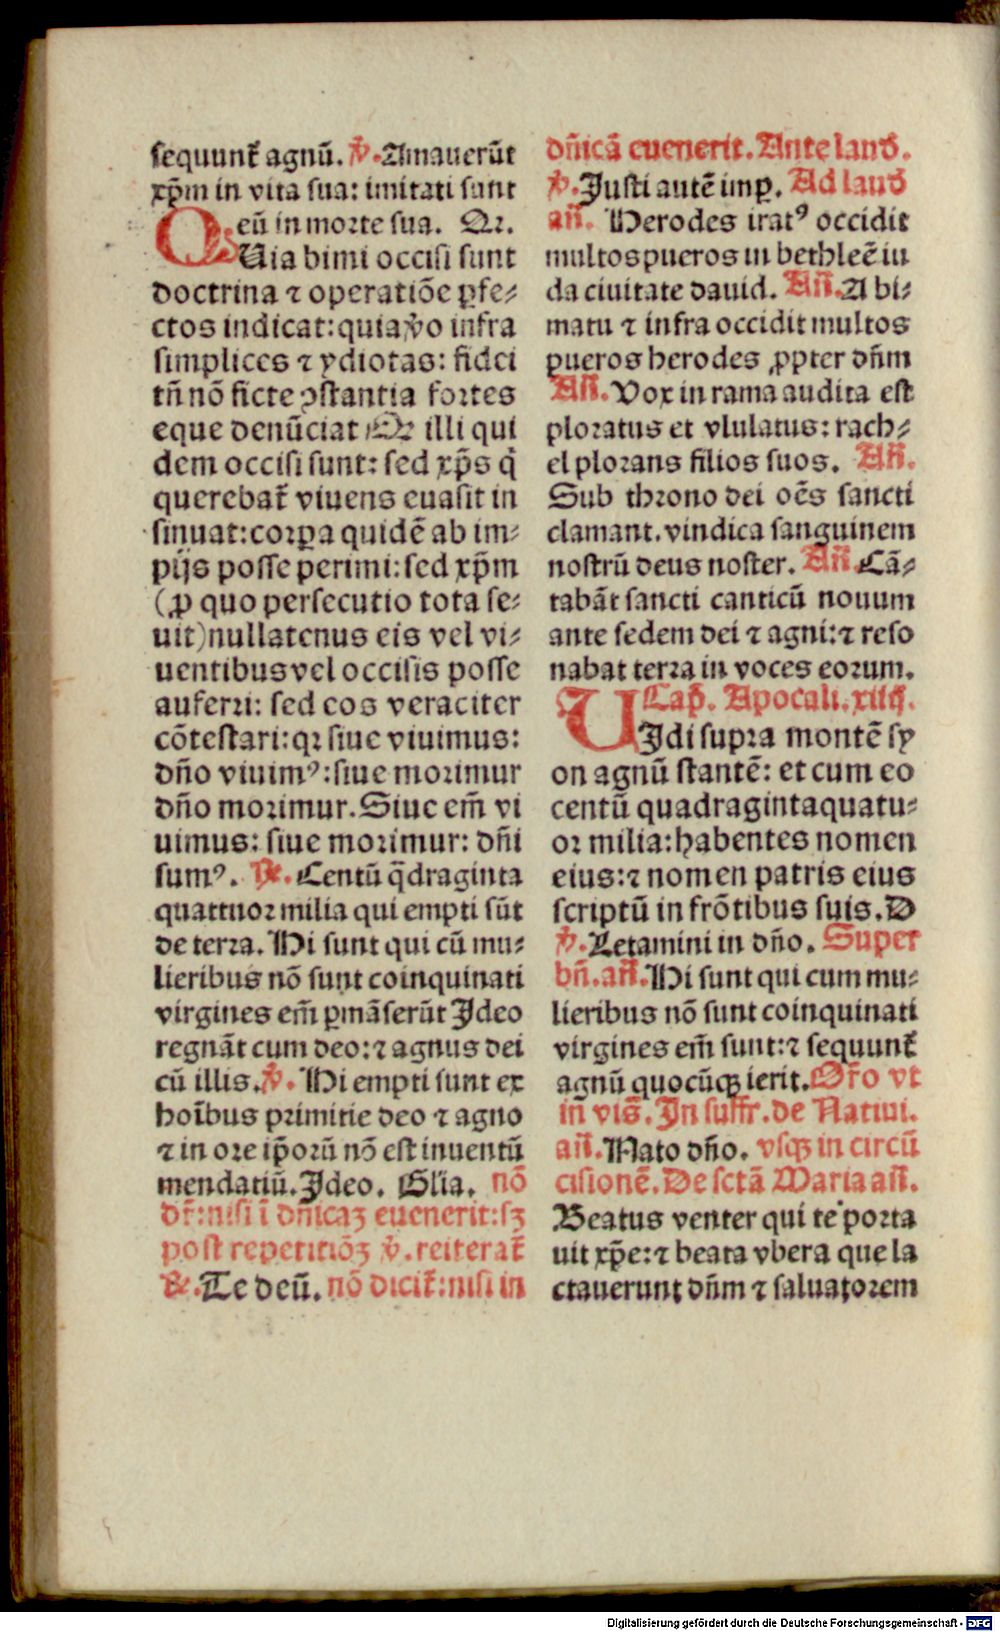 sequunt᷑ agnū. ꝟ. Amauerūt
xp̄m in vita sua: imitati sunt
eū in morte sua. Or.
QUia bimi occisi sunt
doctrina ⁊ operatiōe ꝑfe⸗
ctos indicat: quia ꝟo infra
simplices ⁊ ydiotas: fidei
tn̄ nō ficte ꝯstantia fortes
eque denūciat Or illi qui
dem occisi sunt: sed xp̄s q̇
querebat᷑ viuens euasit in
sinuat: corꝑa quidē ab im⸗
pijs posse perimi: sed xp̄m
(ꝓ quo persecutio tota se⸗
uit) nullatenus eis vel vi⸗
uentibus vel occisis posse
auferri: sed eos veraciter
cōtestari: qꝛ siue viuimus:
dn̄o viuimꝰ: siue morimur
dn̄o morimur. Siue em̄ vi
uimus: siue morimur: dn̄i
sumꝰ. ℟. Centū q̄draginta
quattuor milia qui empti sūt
de terra. Hi sunt qui cū mu⸗
lieribus nō sunt coinquinati
virgines em̄ ꝑmāserūt Ideo
regnāt cum deo: ⁊ agnus dei
cū illis. ꝟ. Hi empti sunt ex
hoībus primitie deo ⁊ agno
⁊ in ore ip̄orū nō est inuentū
mendatiū. Ideo. Gl̄ia. nō
dr̄: nisi ī dn̄icaꝫ euenerit: sꝫ
post repetitiōꝫ ꝟ. reiterat᷑
℟. Te deū. nō dicit᷑: nisi in
dn̄icā euenerit. Ante laud̄.
ꝟ. Justi autē imꝑ. Ad laud̄
an̄. Herodes iratꝰ occidit
multos pueros in bethleē iu
da ciuitate dauid. An̄. A bi⸗
matu ⁊ infra occidit multos
pueros herodes ꝓpter dn̄m
An̄. Vox in rama audita est
ploratus et vlulatus: rach⸗
el plorans filios suos. An̄.
Sub throno dei oēs sancti
clamant. vindica sanguinem
nostrū deus noster. An̄. Cā⸗
tabāt sancti canticū nouum
ante sedem dei ⁊ agni: ⁊ reso
nabat terra in voces eorum.
Cap̄. Apocali. xiiij.
VIdi supra montē sy
on agnū stantē: et cum eo
centū quadragintaquatu⸗
or milia: habentes nomen
eius: ⁊ nomen patris eius
scriptū in frōtibus suis. D
ꝟ. Letamini in dn̄o. Super
bn̄. an̄. Hi sunt qui cum mu⸗
lieribus nō sunt coinquinati
virgines em̄ sunt: ⁊ sequunt᷑
agnū quocūqꝫ ierit. Or̄o vt
in viḡ. In suffr. de Natiui.
an̄. Nato dn̄o. vsqꝫ in circū
cisionē. De sctā Maria an̄.
Beatus venter qui te porta
uit xp̄e: ⁊ beata vbera que la
ctauerunt dn̄m ⁊ saluatorem
Digitalisierung gefördert durch die Deutsche Forschungsgemeinschaft - DFG